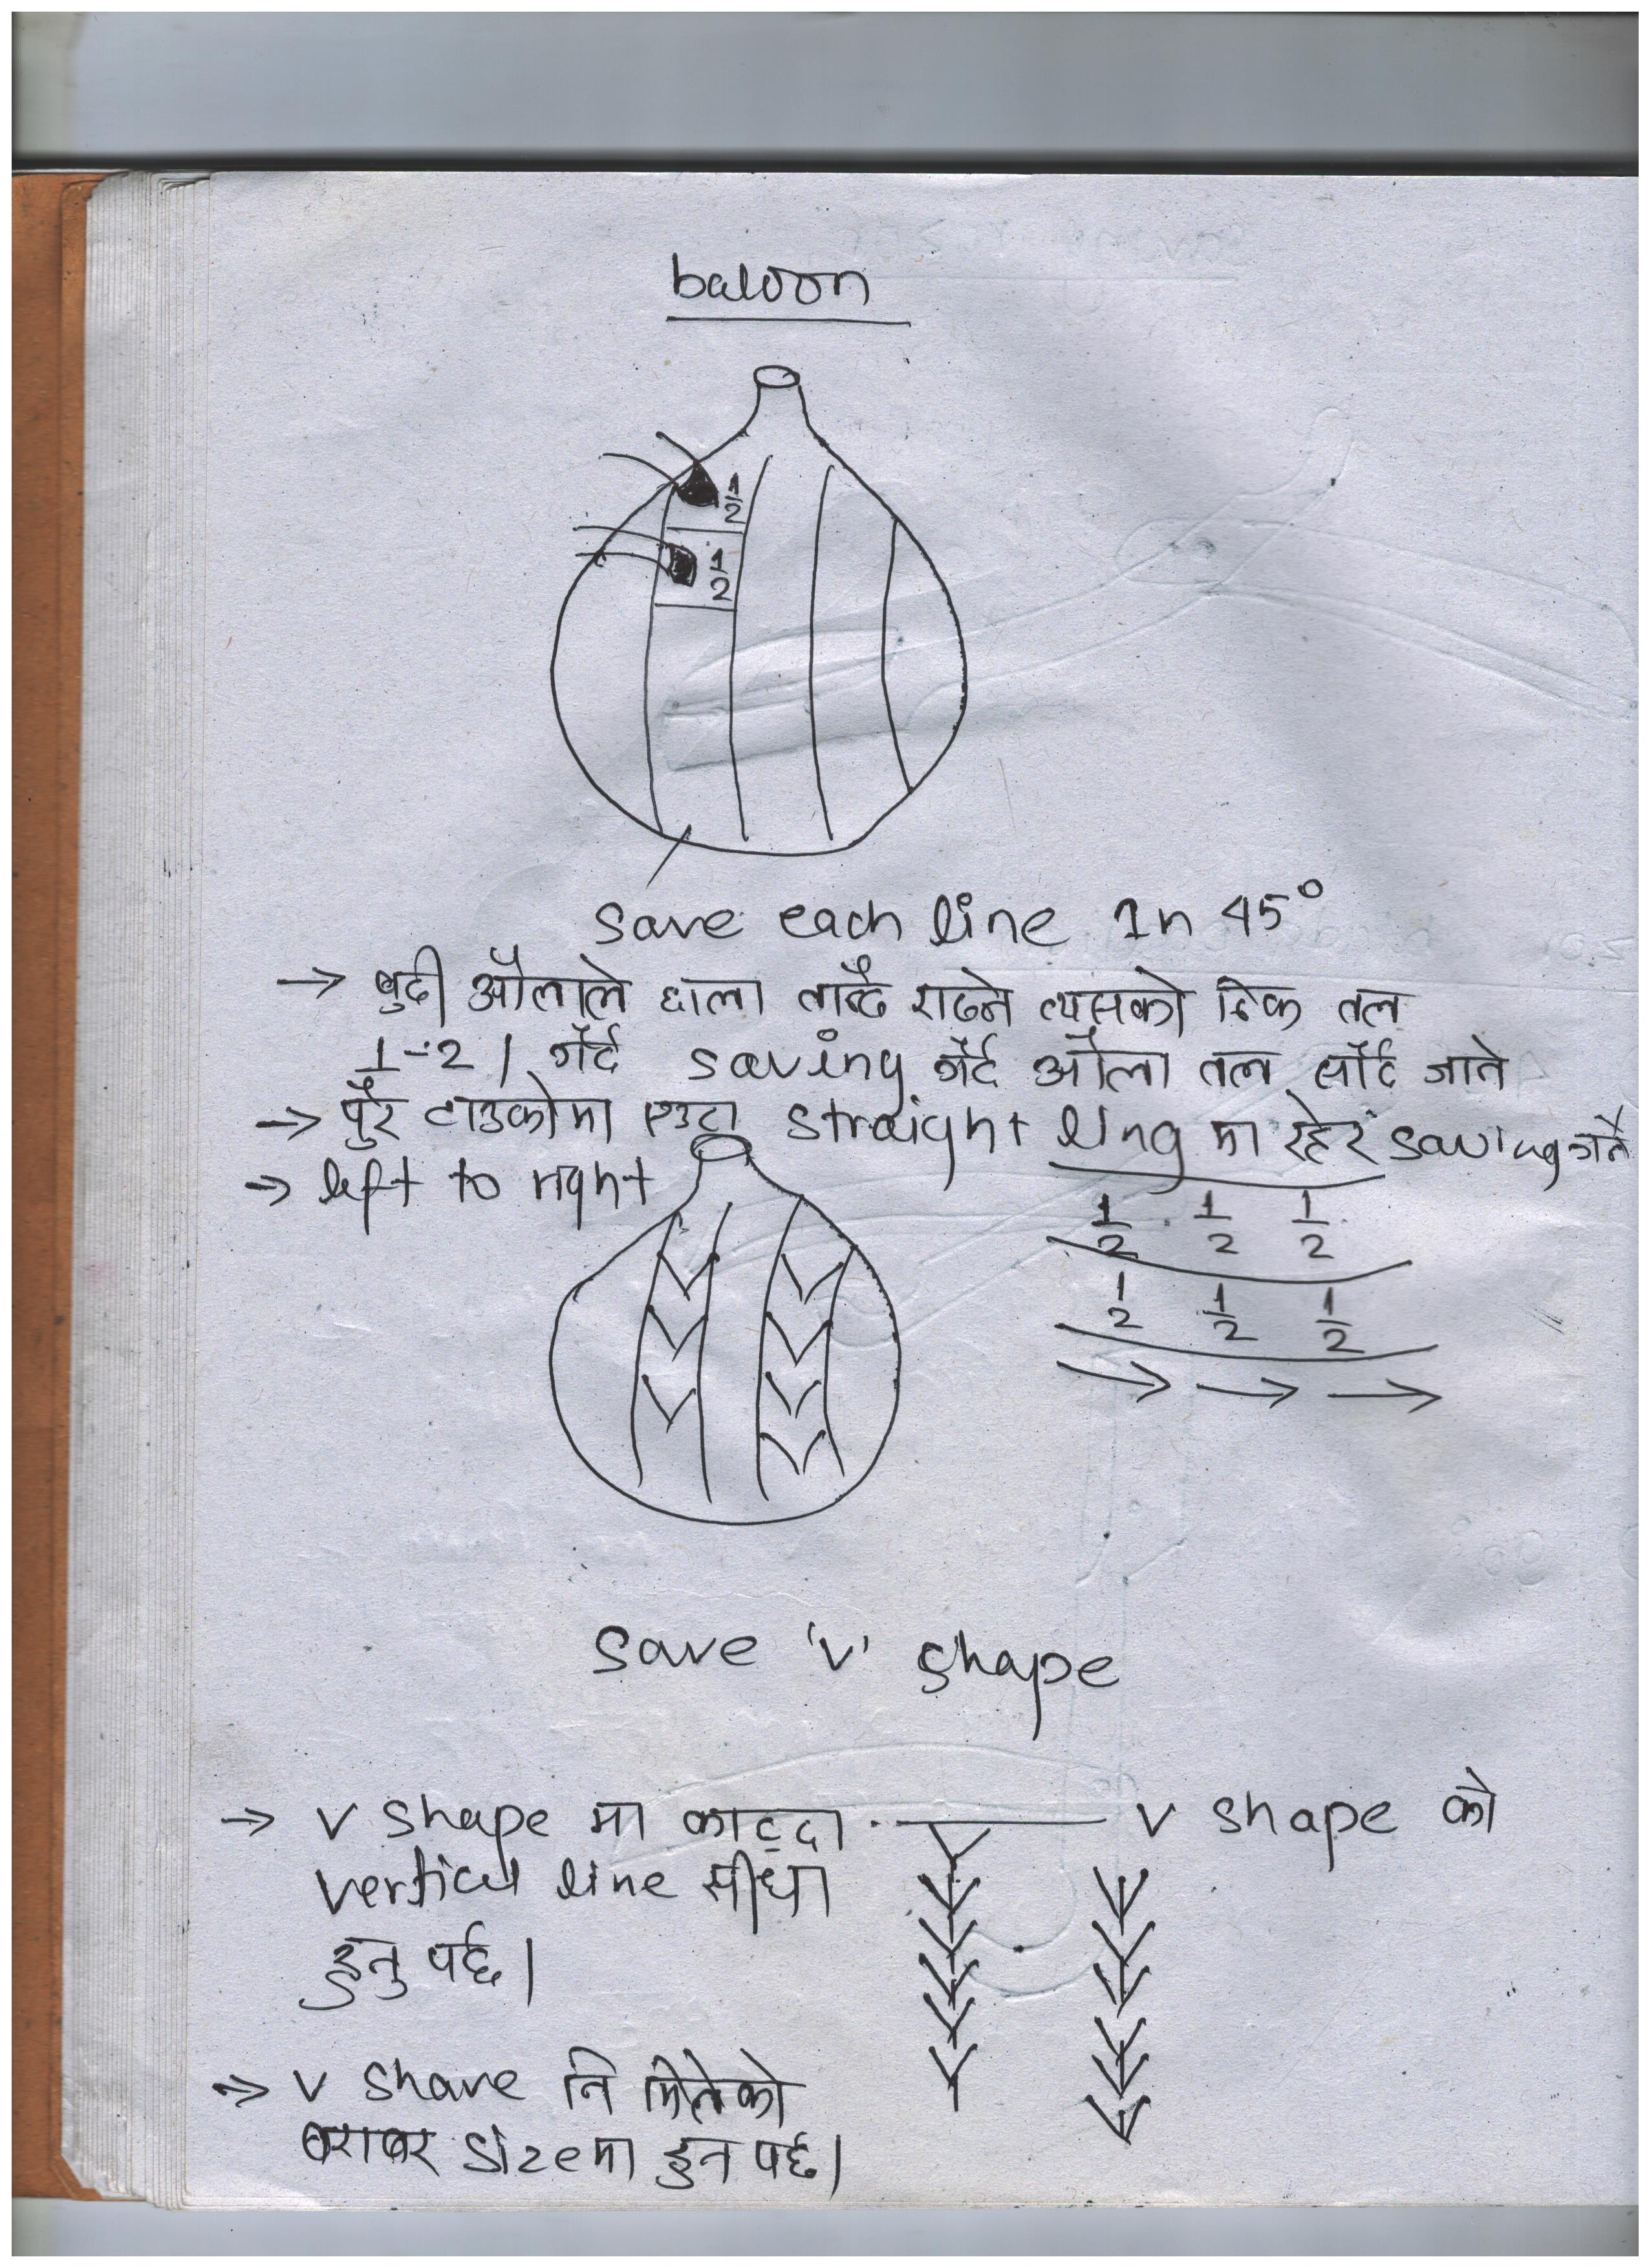 baloon
1/2
1/2
save each line In 45°
→ बुढी औंलाले छाला तान्दै राख्ने त्यसको ठिक तल
1-2 | गर्दै saving गर्दै औंला तल सार्दै जाने
→ पुरै टाउकोमा एउटा straight ling मा रहेर saving गर्ने
→ left to right
1/2 1/2 1/2
1/2 1/2 1/2
save 'v' shape
→ v shape मा काट्दा v shape को
vertical line सीधा
हुनु पर्छ।
→ v shave नि मिलेको
बराबर size मा हुन पर्छ।